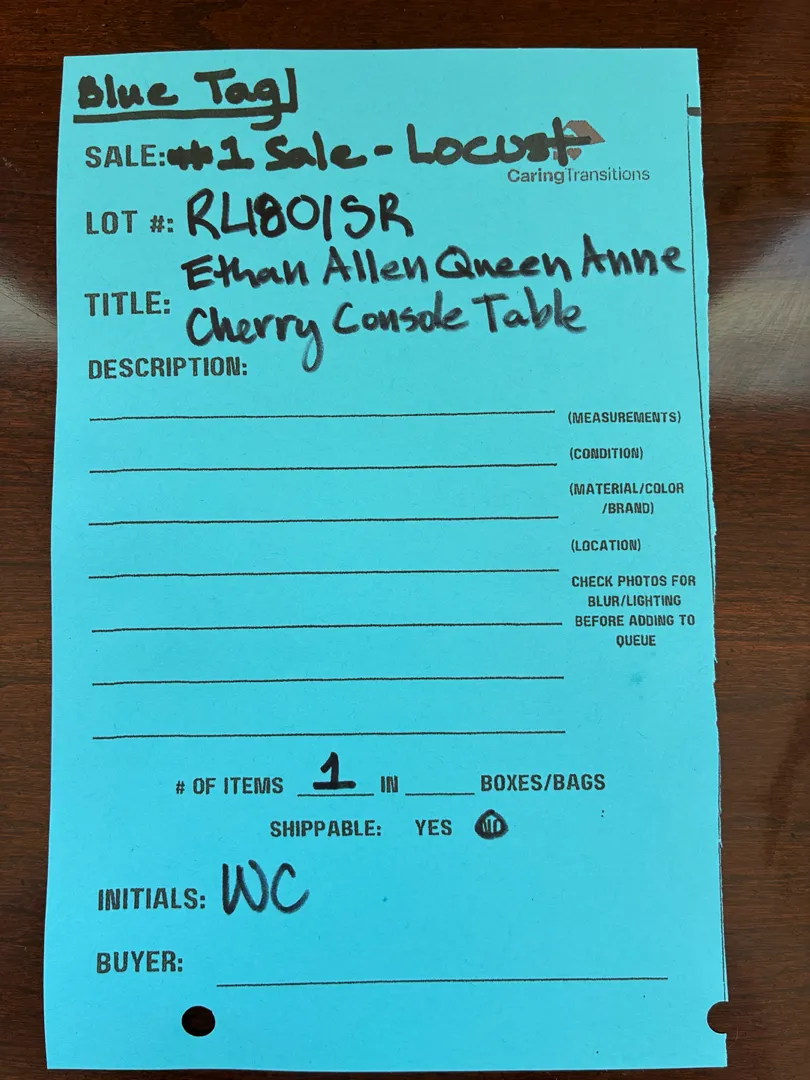 Blue Tag
SALE: #1 Sale - Locust
CaringTransitions
LOT #: RL1801SR
Ethan Allen Queen Anne
TITLE: Cherry Console Table
DESCRIPTION:
(MEASUREMENTS)
(CONDITION)
(MATERIAL/COLOR
/BRAND)
(LOCATION)
CHECK PHOTOS FOR
BLUR/LIGHTING
BEFORE ADDING TO
QUEUE
# OF ITEMS 1 IN BOXES/BAGS
SHIPPABLE: YES NO
INITIALS: WC
BUYER: